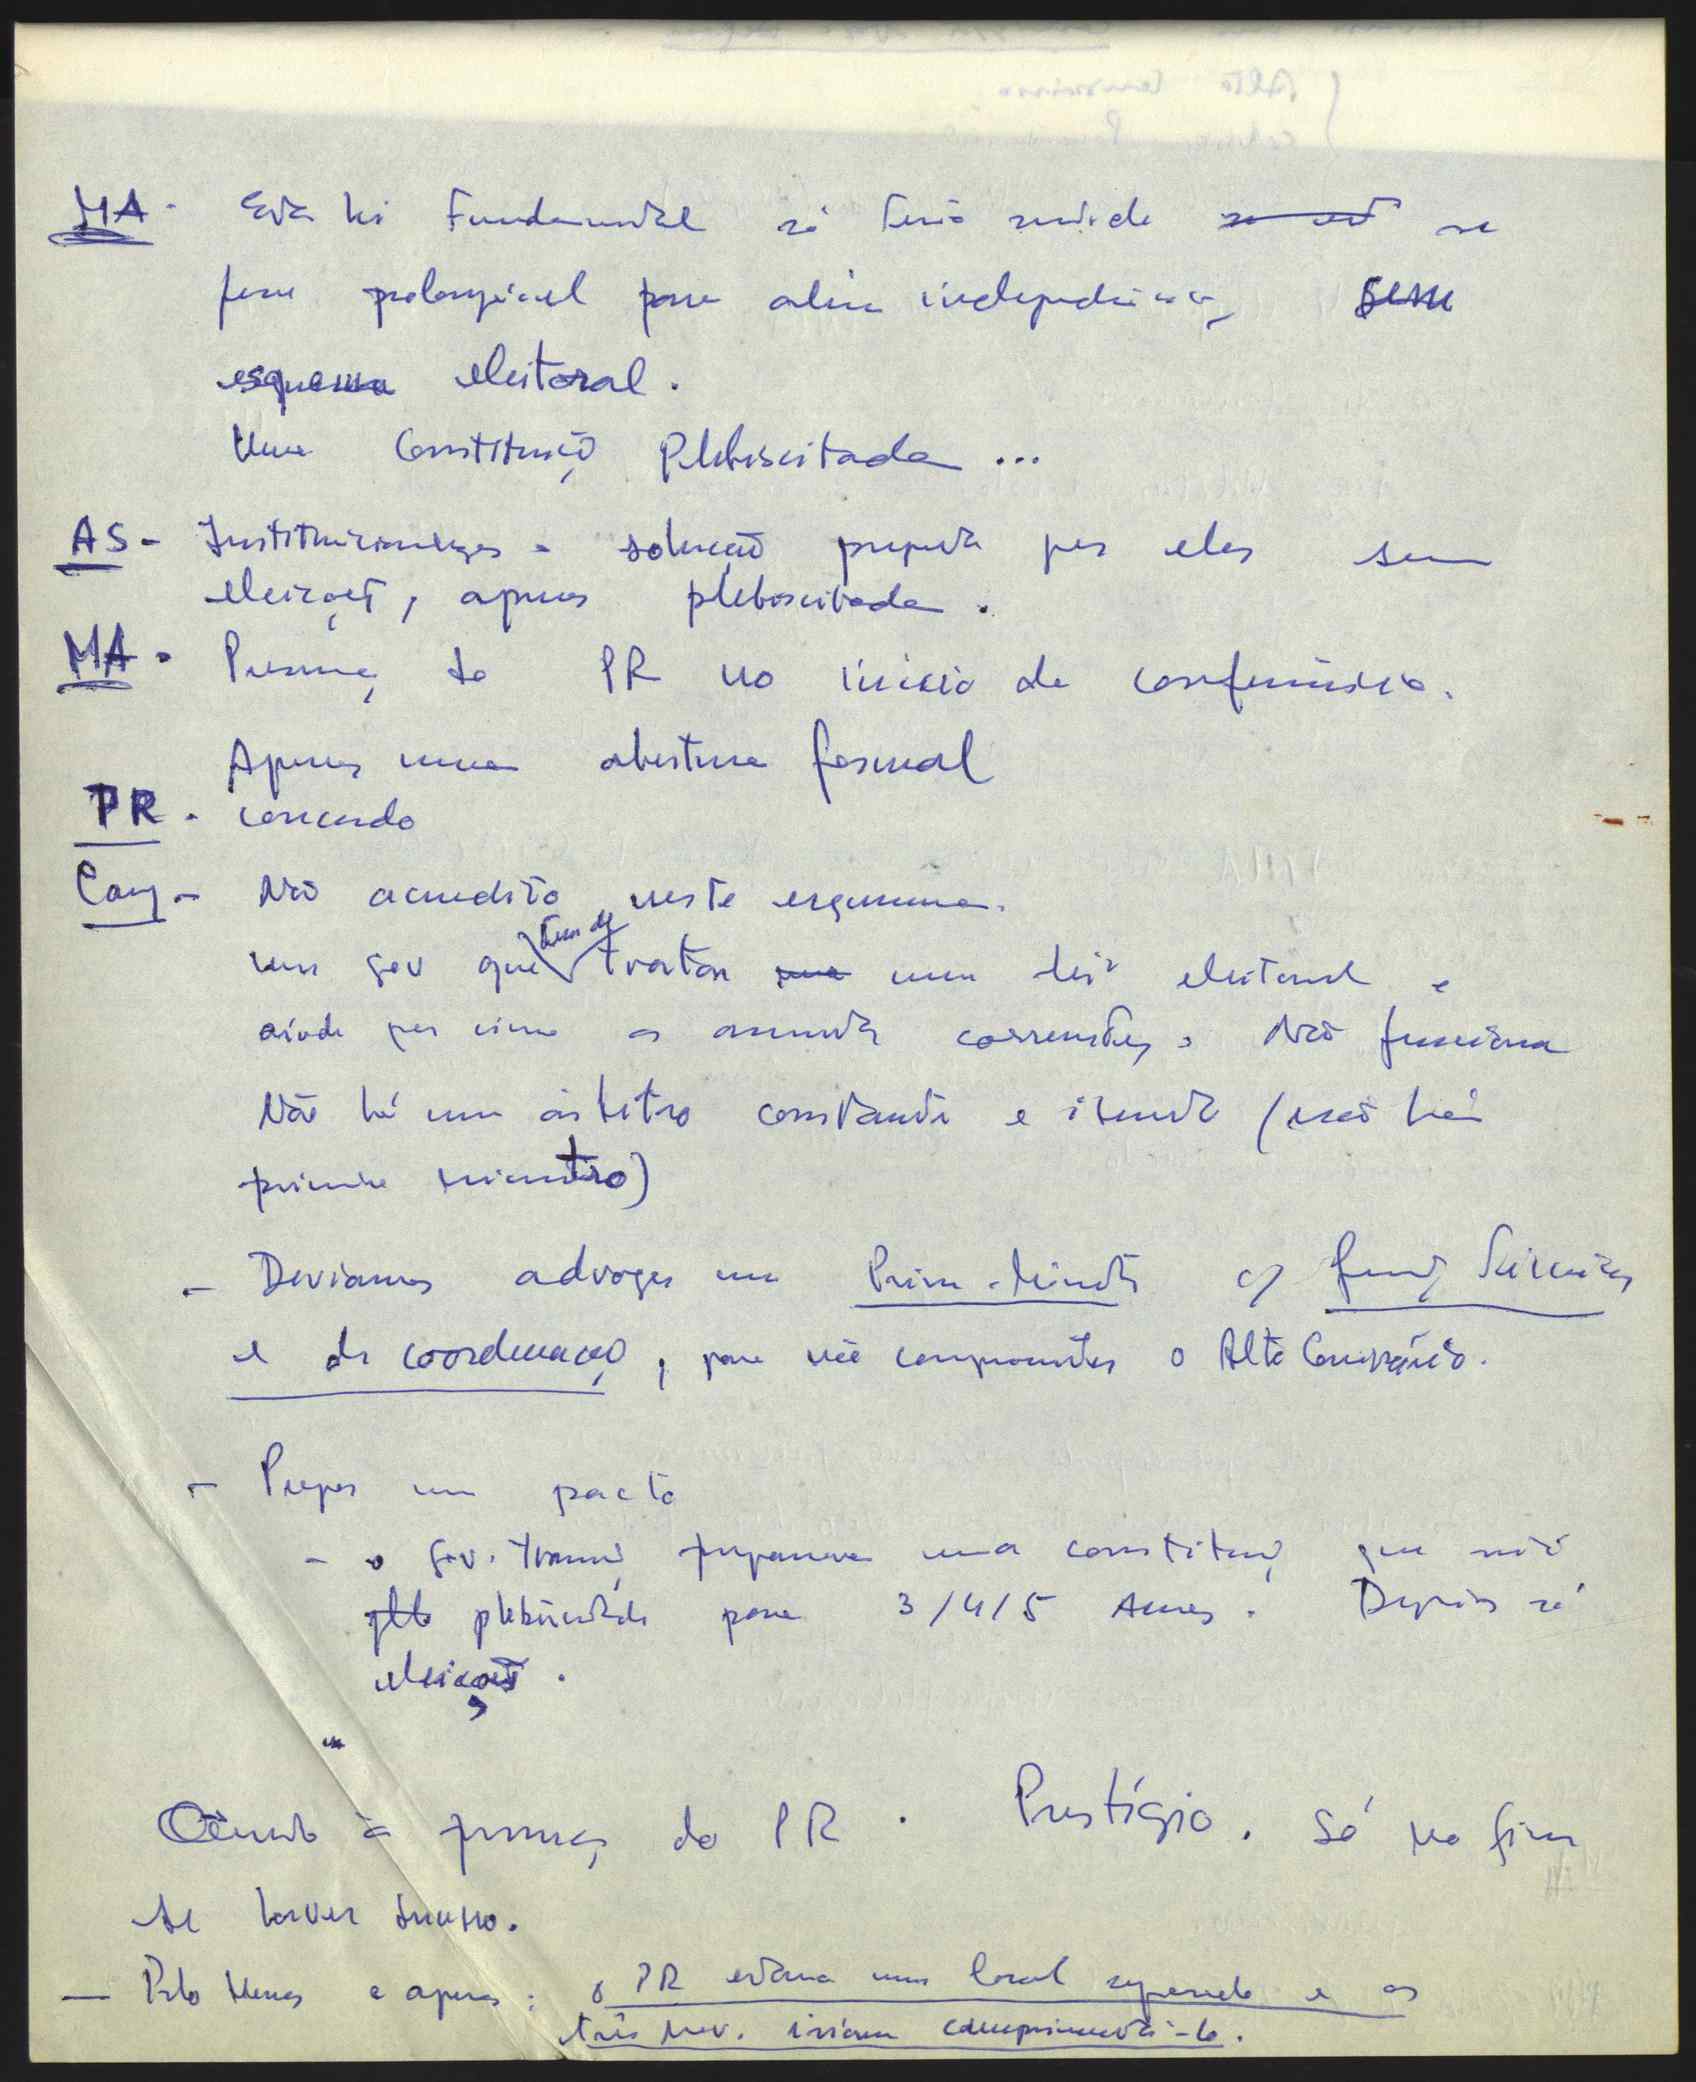 MA - Esta lei Fundamental só terá sentido se
fosse prolongável para além independência, sem
esquema eleitoral.
Uma Constituição Plebiscitada ...
AS - Institucionalizar a solução proposta por eles sem
eleições, apenas plebiscitada.
MA - Presença do PR no início da conferência.
Apenas uma abertura formal
PR - concordo
Não acredito neste esquema.
um gov que tem de tratar uma lei eleitoral e
ainda por cima os assuntos correntes. Não funciona
Não há um árbitro constante e isento (não há
primeiro ministro)
- Devíamos advogar um Prim. Ministro c/ funç
e de coordenação, para não comprometer o Alto Comissário.
- Propor um pacto
- o gov. trans preparava uma constituiç que será
plebiscitada para 3/4/5 Anos. Depois só
eleições.
Quanto à presença do PR. Prestígio. Só no fim
se houver sucesso.
- Pelo Menos e apenas: o PR estava num local separado e os
três mov. iriam cumprimentá-lo.